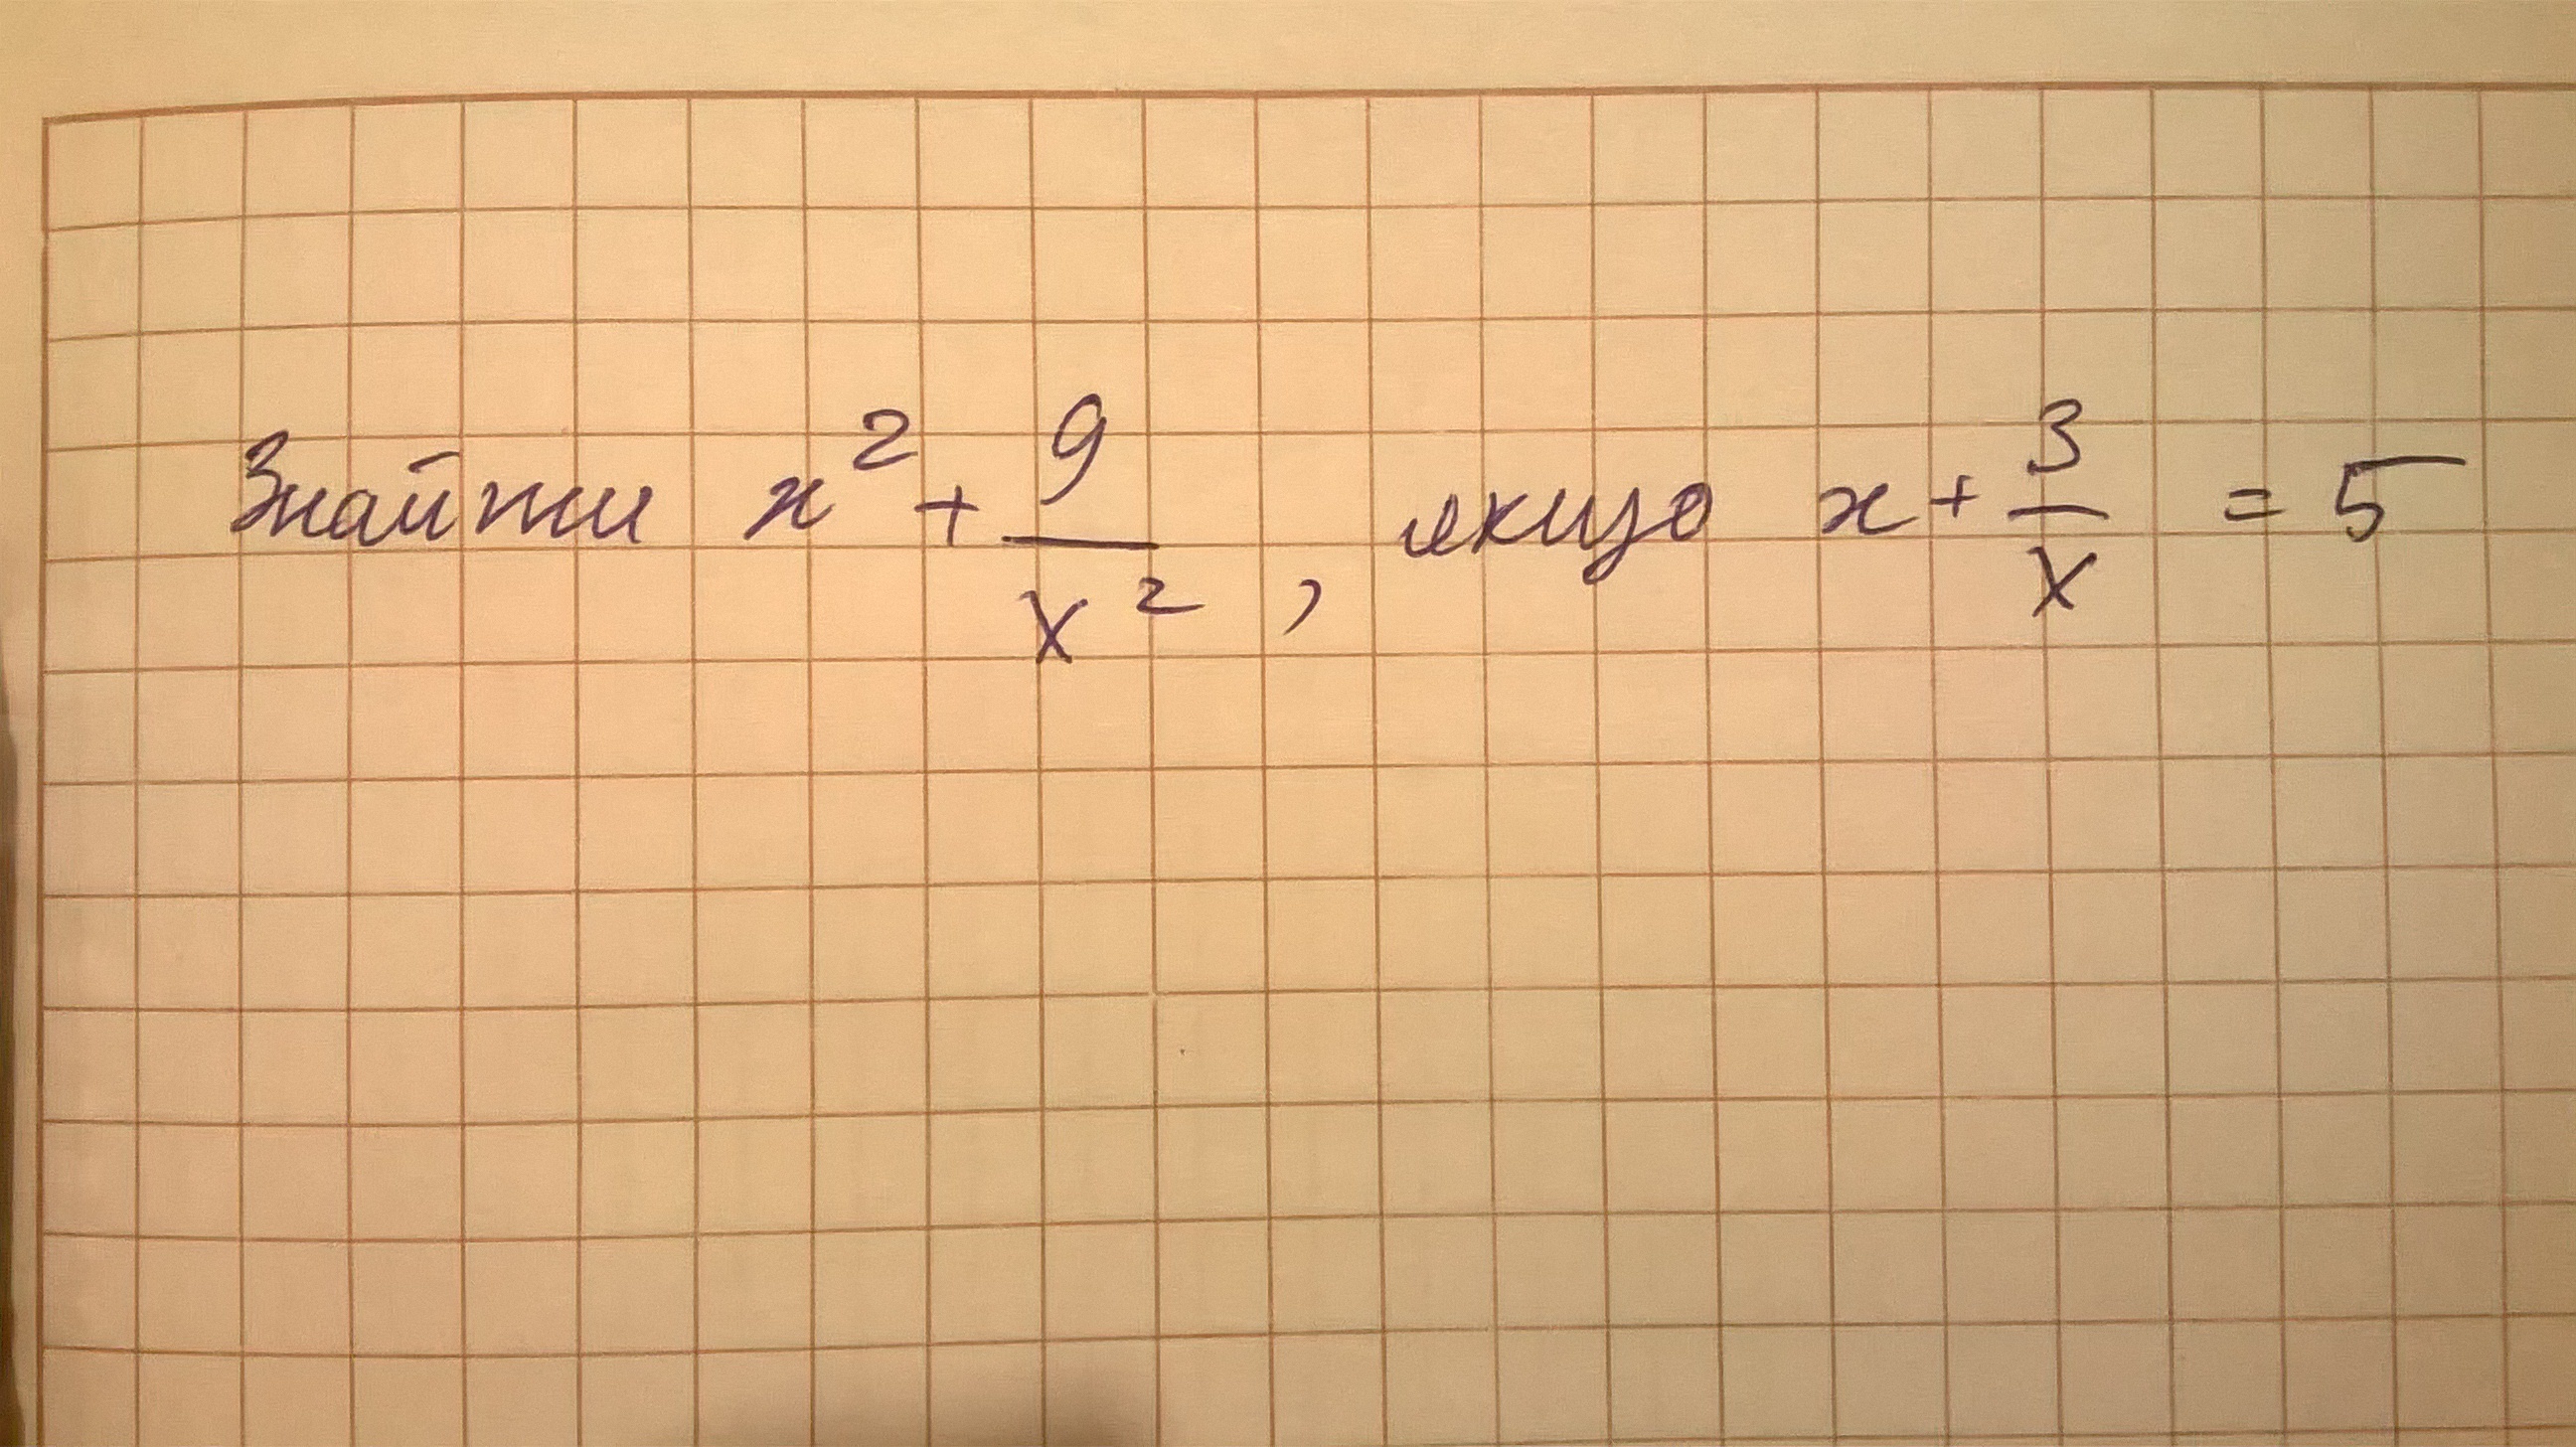 Знайти x² + 9/x² , якщо x + 3/x = 5